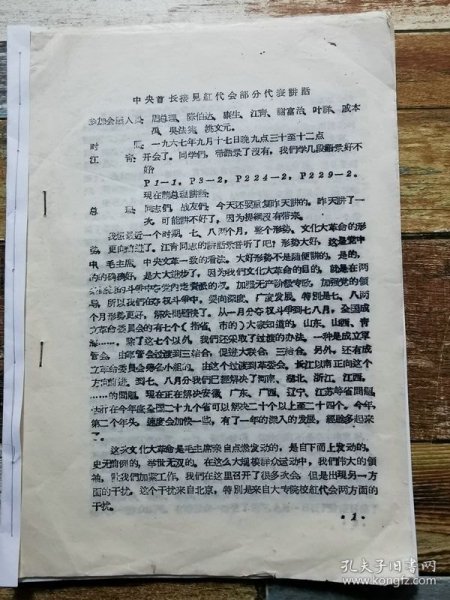 中央首长接见红代会部分代表讲话
参加会见人员：周总理、陈伯达、康生、江青、谢富治、叶群、戚本
禹、吴法宪、姚文元。
时 间：一九六七年九月十七日晚九点三十至十二点
江 青：开会了。同学们，带语录了没有，我们学几段语录好不
好？
P1—1，P3—2，P224—2，P229—2。
现在请总理讲话。
总 理：同志们，战友们：今天还要重复昨天讲的。昨天讲了一
次，可能讲不好了，因为提纲没有带来。
我想最近一个时期，七、八两个月，整个形势，文化大革命的形
势，更向前进了。江青同志的讲话录音听了吧？形势大好，这是党中
央、毛主席、中央文革一致的看法。大好形势不是随便讲的，是的，
的的确确好，是大大进步了。因为我们文化大革命的目的，就是在两
加强无产阶级专政，加强党的领
导，所以我们在夺权斗争中，要向深度、广度发展。特别是七、八两
个月形势更好，解决问题快了。从一月分夺权斗争到七八月，全国成
立革命委员会的有七个（指省、市的）大家知道的，山东、山西、青
海……，除了这七个以外，我们还采取了过渡的办法，一种是成立军
管会，由军管会过渡到三结合，促进大联合、三结合。另外，还有成
立革命委员会筹备小组的。由这个过渡到革委会。长江以南正向这个
方面前进。到七、八月分我们已经解决了河南、湖北、浙江、江西，
……的问题，现在正在解决安徽、广东、广西、辽宁、江苏等省问题，
估计在今年底全国二十九个省可以解决二十个以上至二十四个。今年，
第二个年头，速度会加快一些，有了一年的深入的发展，经验多起来
了。
这次文化大革命是毛主席亲自点燃发动的，是自下而上发动的，
史无前例的，举世无双的。在这么大规模群众运动中，我们伟大的领
袖，让我们加紧工作，我们在这里召开了很多次会，但是出现另一方
面的干扰。这个干扰来自北京，特别是来自大专院校红代会两方面的
干扰。
·1·
孔夫子旧书网
www.kongfz.com